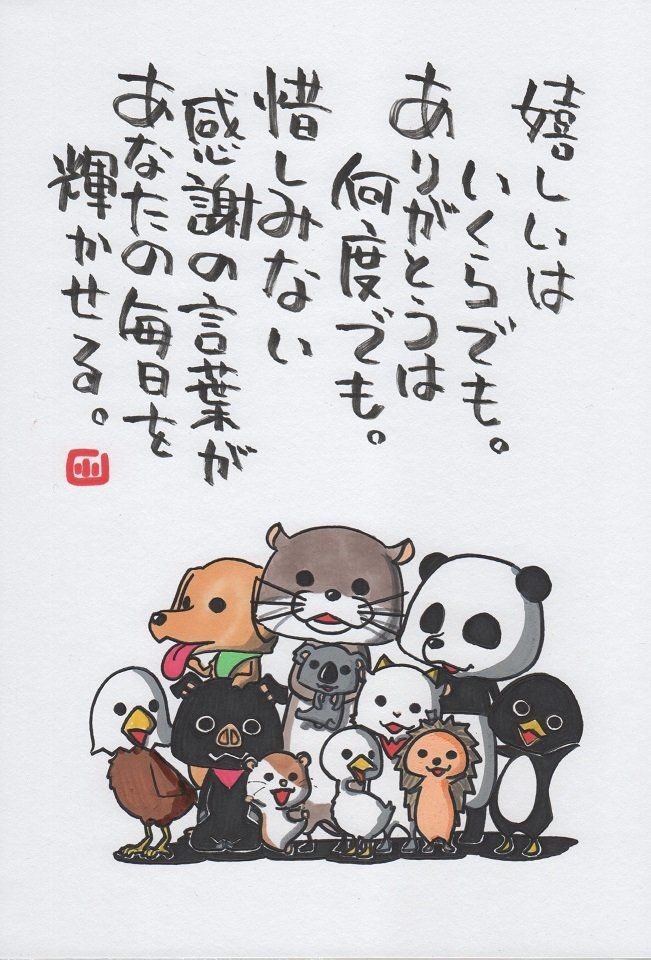 嬉しいは
いくらでも。
ありがとうは
何度でも。
惜しみない
感謝の言葉が
あなたの毎日を
輝かせる。